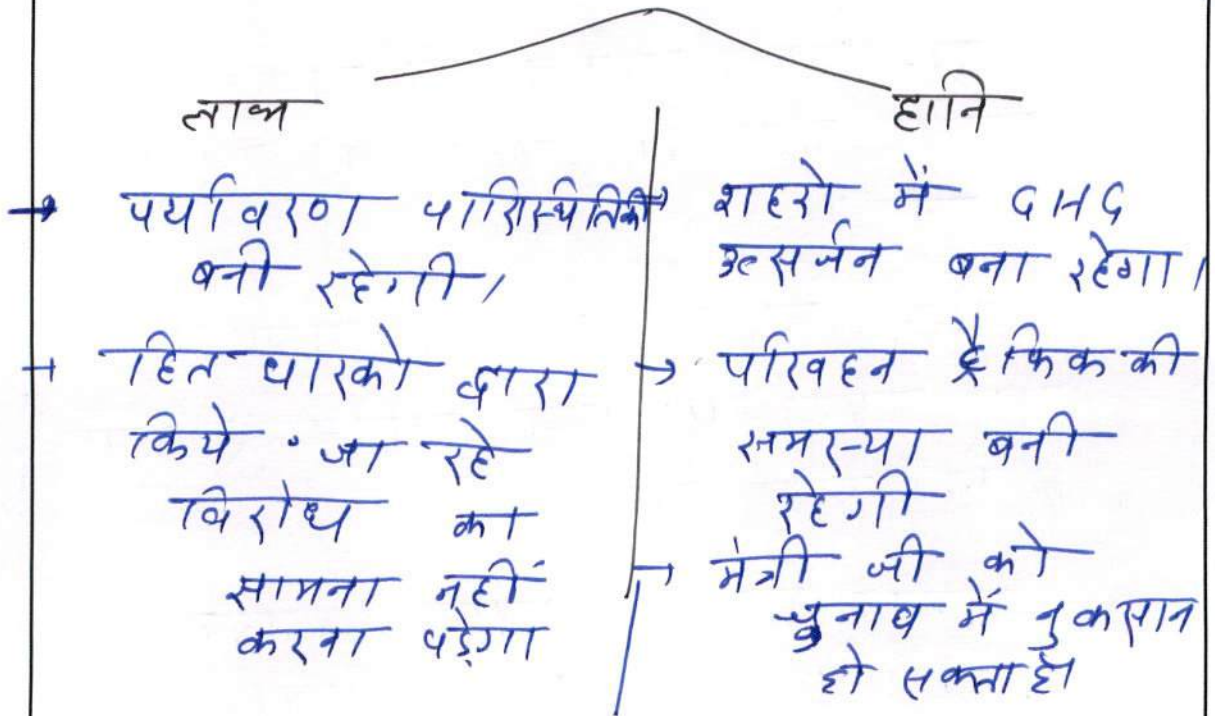 लाभ
→ पर्यावरण पारिस्थितिकी
बनी रहेगी।
→ हित धारको द्वारा
किये जा रहे
विरोध का
सामना नहीं
करना पड़ेगा
हानि
→ शहरो में GHG
उत्सर्जन बना रहेगा।
→ परिवहन ट्रैफिक की
समस्या बनी
रहेगी
→ मंत्री जी को
चुनाव में नुकसान
हो सकता है